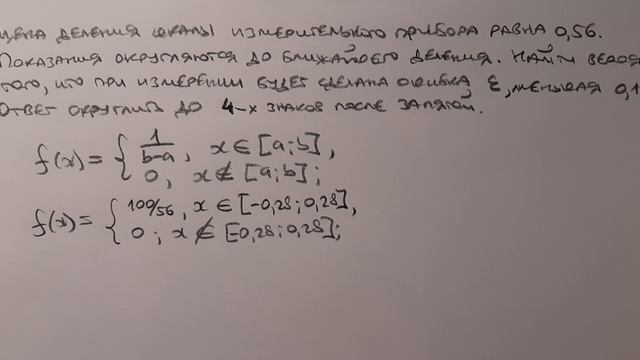 ЦЕНА ДЕЛЕНИЯ ШКАЛЫ ИЗМЕРИТЕЛЬНОГО ПРИБОРА РАВНА 0,56.
ПОКАЗАНИЯ ОКРУГЛЯЮТСЯ ДО БЛИЖАЙШЕГО ДЕЛЕНИЯ. НАЙТИ ВЕРОЯ
ТОГО, ЧТО ПРИ ИЗМЕРЕНИИ БУДЕТ СДЕЛАНА ОШИБКА ξ, МЕНЬШАЯ 0,1
ОТВЕТ ОКРУГЛИТЬ ДО 4-х ЗНАКОВ ПОСЛЕ ЗАПЯТОЙ.
f(x) = { 1/(b-a), x ∈ [a; b],
0, x ∉ [a; b];
f(x) = { 100/56, x ∈ [-0,28; 0,28],
0; x ∉ [-0,28; 0,28];